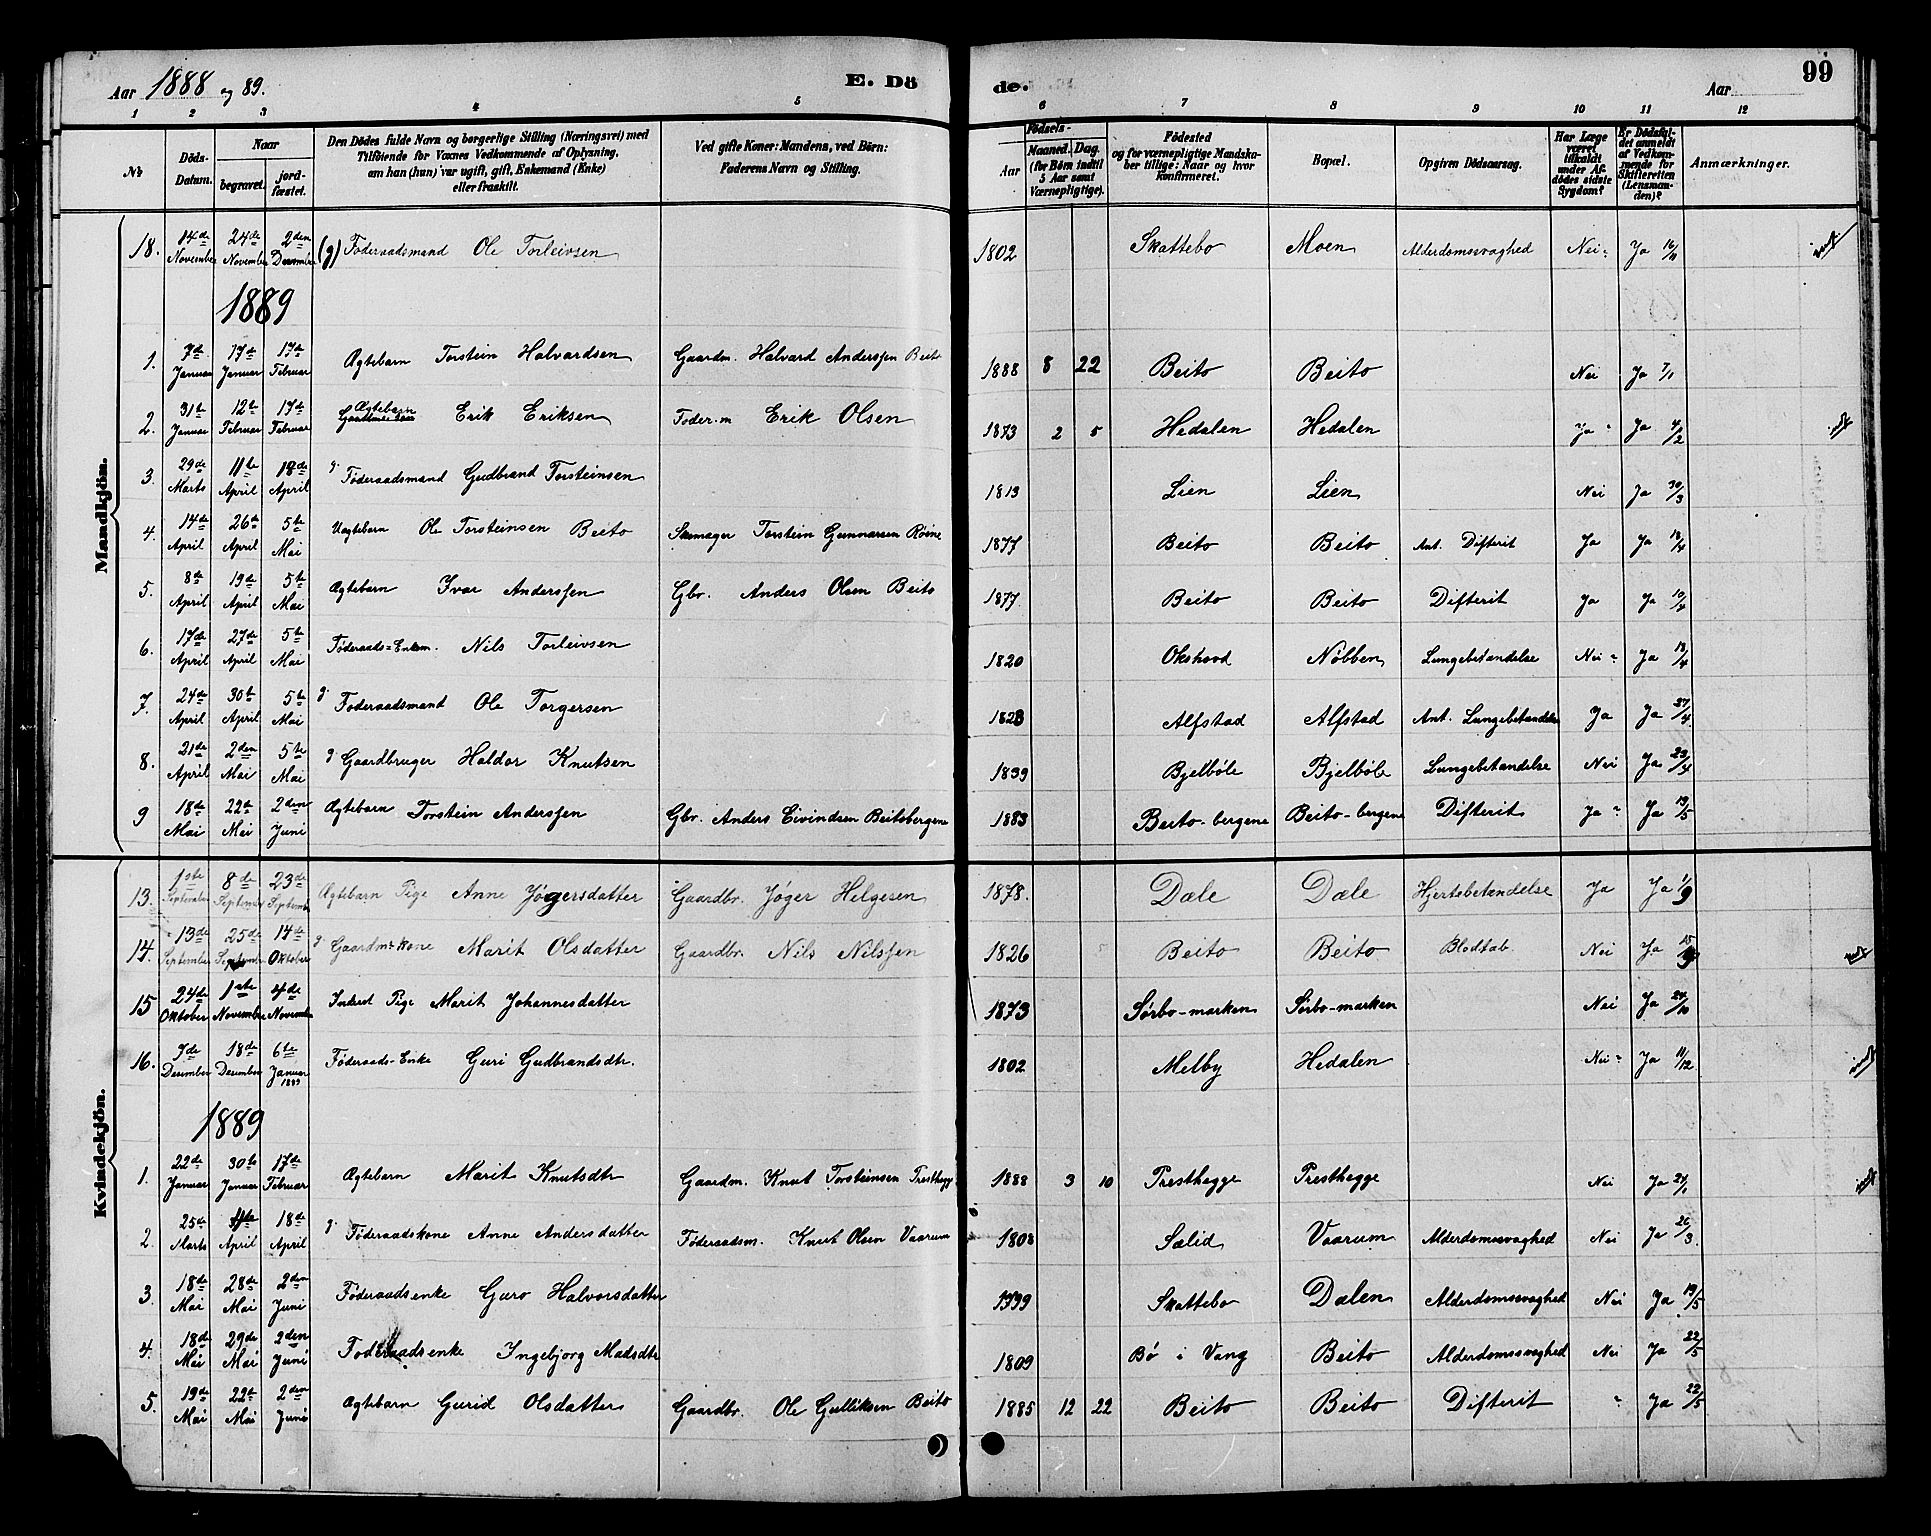 Aar 1888 og 89. E. Dö de. Aar 99
1 2 3 4 5 6 7 8 9 10 11 12
№ Döds-Datum. Naar begravet. jordfæstet. Den Dödes fulde Navn og borgerlige Stilling (Næringsvei) med Tilföiende for Voxnes Vedkommende af Oplysning, om han (hun) var ugift, gift, Enkemand (Enke) eller fraskilt. Ved gifte Koner: Mandens, ved Börn: Faderens Navn og Stilling. Födsels- Aar Maaned. Dag. (for Börn indtil 5 Aar samt Værnepligtige). Födested og for værnepligtige Mandskaber tillige: Naar og hvor konfirmeret. Bopæl. Opgiven Dödsaarsag. Har Læge været tilkaldt under Afdödes sidste Sygdom? Er Dödsfaldet anmeldt af Vedkommende for Skifteretten (Lensmanden)? Anmærkninger.
Mandkjön.
18. 14de November 24de November 2den Desember (g) Föderaadsmand Ole Torleivsen 1802 Skattebo Moen Alderdomssvaghed Nei Ja 16/11
1889
1. 7de Januar 17de Januar 17de Februar Ægtebarn Torstein Halvardsen Gaardm. Halvard Anderssen Beito 1888 8 22 Beito Beito Nei Ja 7/1
2. 31te Januar 12te Februar 17de Februar Ægtebarn Erik Eriksen Foder.m Erik Olsen 1873 2 5 Hedalen Hedalen Ja Ja 4/2
3. 29de Marts 11te April 18de April g. Föderaadsmand Gudbrand Torsteinsen 1813 Lien Lien Nei Ja 30/3
4. 14de April 26de April 5te Mai Uægtebarn Ole Torsteinsen Beito Skomager Torstein Gunnarsen Röine 1877 Beito Beito Ant. Difterit Ja Ja 18/4
5. 8de April 19de April 5te Mai Ægtebarn Ivar Anderssen Gbr. Anders Olsen Beito 1877 Beito Beito Difterit Ja Ja 10/4
6. 17de April 27de April 5te Mai Föderaads-Enkem. Nils Torleivsen 1820 Okshovd Nöbben Lungebetændelse Nei Ja 18/4
7. 24de April 30te April 5te Mai g. Föderaadsmand Ole Torgersen 1823 Alfstad Alfstad Ant. Lungebetændelse Ja Ja 27/4
8. 21de April 2den Mai 5te Mai g. Gaardbruger Haldor Knutsen 1839 Bjelböle Bjelböle Lungebetændelse Nei Ja 23/4
9 18de Mai 22de Mai 2den Juni Ægtebarn Torstein Anderssen Gbr. Anders Eivindsen Beitobergene 1883 Beito-bergene Beito-bergene Difterit Ja Ja 19/5
Kvindekjön.
13. 1ste September 8de September 23de September Ægtebarn Pige Anne Jögersdatter Gaardbr. Jöger Helgesen 1878. Dæle Dæle Hjertebetændelse Ja Ja 1/9
14. 13de September 25de September 14de Oktober g. Gaardm.kone Marit Olsdatter Gaardbr. Nils Nilssen 1826 Beito Beito Blodtab Nei Ja 15/9
15 24de Oktober 1ste November 4de November Inderst Pige Marit Johannesdatter 1873 Sörbo-marken Sörbo-marken Nei Ja 24/10
16. 7de Desember 18de Desember 6te Januar 1889 Föderaads-Enke Guri Gudbrandsdtr. 1802 Melby Hedalen Nei Ja 11/12
1889
1. 22de Januar 30te Januar 17de Februar Ægtebarn Marit Knutsdtr Gaardm. Knut Torsteinsen Presthegge 1888 3 10 Presthegge Presthegge Nei Ja 24/1
2. 25de Marts April 18de April g. Föderaadskone Anne Andersdatter Föderaadsm. Knut Olsen Vaarum 1808 Sælid Vaarum Alderdomssvaghed Nei Ja 26/3
3. 18de Mai 28de Mai 2den Juni Föderaadsenke Guro Halvorsdatter 1799 Skattebo Dælen Alderdomssvaghed Nei Ja 19/5
4. 18de Mai 29de Mai 2den Juni Föderaadsenke Ingebjorg Madsdtr 1809 Bö i Vang Beito Alderdomssvaghed Nei Ja 22/5
5. 19de Mai 22de Mai 2den Juni Ægtebarn Gurid Olsdatter Gaardbr. Ole Gulliksen Beito 1885 12 22 Beito Beito Difterit " Ja 22/5